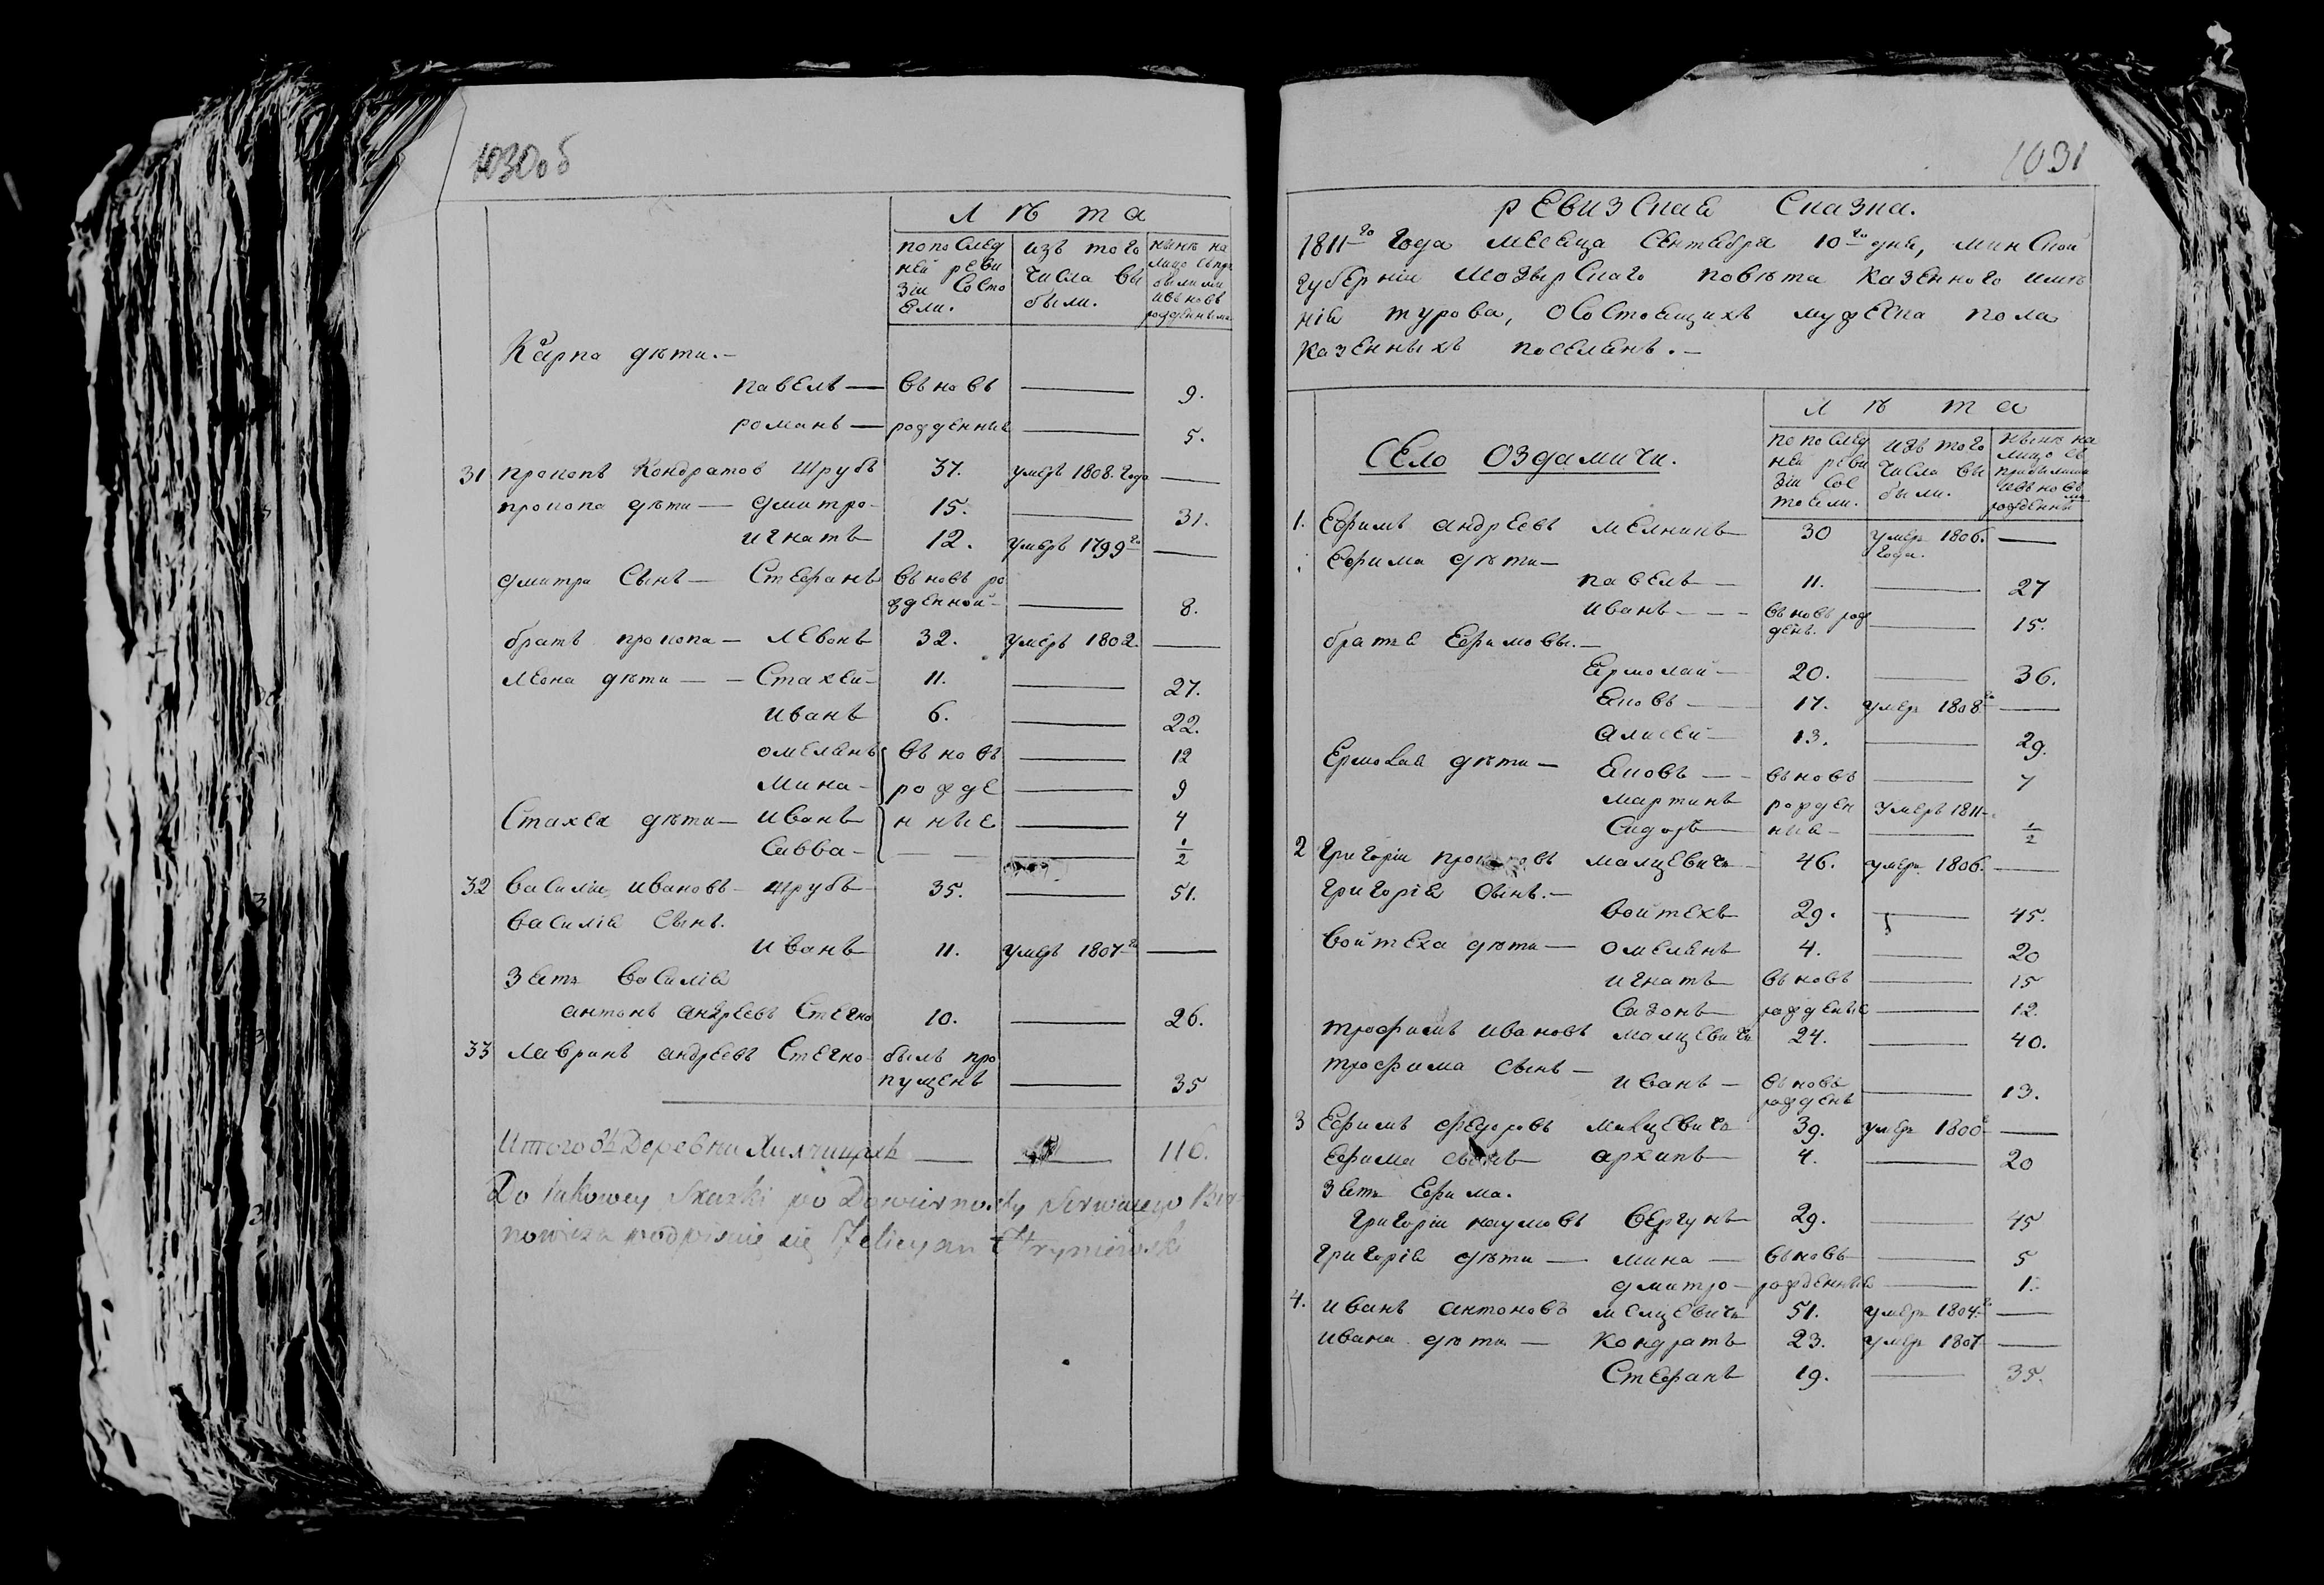 1030об
Лѣта
по послед изъ того нынѣ на
ней реви числа вы лицо съ при
зіи состо были. былыми
яли. и вновь
рожденными
Карпа дѣти. —
павелъ — вьновь — 9.
романъ — рожденные — 5.
31 прокопъ Кондратов шрубъ 37. умеръ 1808. года —
прокопа дѣти — дмитро — 15. — 31.
игнатъ 12. умеръ 1799го —
дмитра сынъ — Стефанъ вьновь ро
жденной — 8.
братъ прокопа — левонъ 32. умеръ 1802. —
леона дѣти — Стахей — 11. — 27.
иванъ 6. — 22.
омелянъ вьновь — 12
мина — рожде — 9
Стахея дѣти — иванъ нные — 4
Савва — — 1/2
32 василiи ивановъ — шрубъ 35. — 51.
василія сынъ.
иванъ 11. умеръ 1807го —
зять василія
антонъ андреевъ Стегно 10. — 26.
33 лавринъ андреевъ Стегно былъ про
пущенъ — 35
Итого въ Деревни Хилчицахъ — 116.
Do takowey skazki po Dowiernosty
podpisuie się Felicyan
1031
ревизская Сказка.
1811го года месяца Сентября 10го дня, минской
губерніи мозырскаго повѣта казенного имѣ
нія турова, о состоящихъ мужеска пола
казенныхъ поселянъ. —
Лѣта
Село Оздамичи.
по послед изъ того нынѣ на
ней реви числа вы лицо съ
зіи сос были. прибылими
тояли. и вьновь
рожденными
1. Ефимъ андреевъ мелникъ 30 умер 1806. —
года.
Ефима дѣти —
павелъ — 11. — 27
иванъ — вьновь рож
денъ. — 15.
братья Ефимовы. —
Ермолай — 20. — 36.
Яковъ — 17. умер 1808го —
алисей — 13. — 29.
Ермолая дѣти — Яковъ — вьновь — 7
мартинъ рожден умеръ 1811
Сидоръ ные — 1/2
2 григорiи малцевичъ 46. умеръ 1806. —
григорія сынъ. —
войтехъ 29. — 45.
войтеха дѣти — омелянъ 4. — 20
игнатъ вьновь — 15
Сазонъ рожденые — 12.
трофимъ ивановъ малцевичъ 24. — 40.
трофима сынъ —
иванъ — вьновь
рожденъ — 13.
3 Ефимъ федоровъ малцевичъ 39. умеръ 1800го —
Ефима сынъ архипъ 4. — 20
зять Ефима.
григорiи наумовъ вергунъ 29. — 45
григорія дѣти — мина — вьновь — 5
дмитро — рожденные — 1.
4. иванъ антоновъ мелцевичъ 51. умеръ 1804го —
ивана дѣти — кондратъ 23. умеръ 1807 —
Стефанъ 19. — 35.